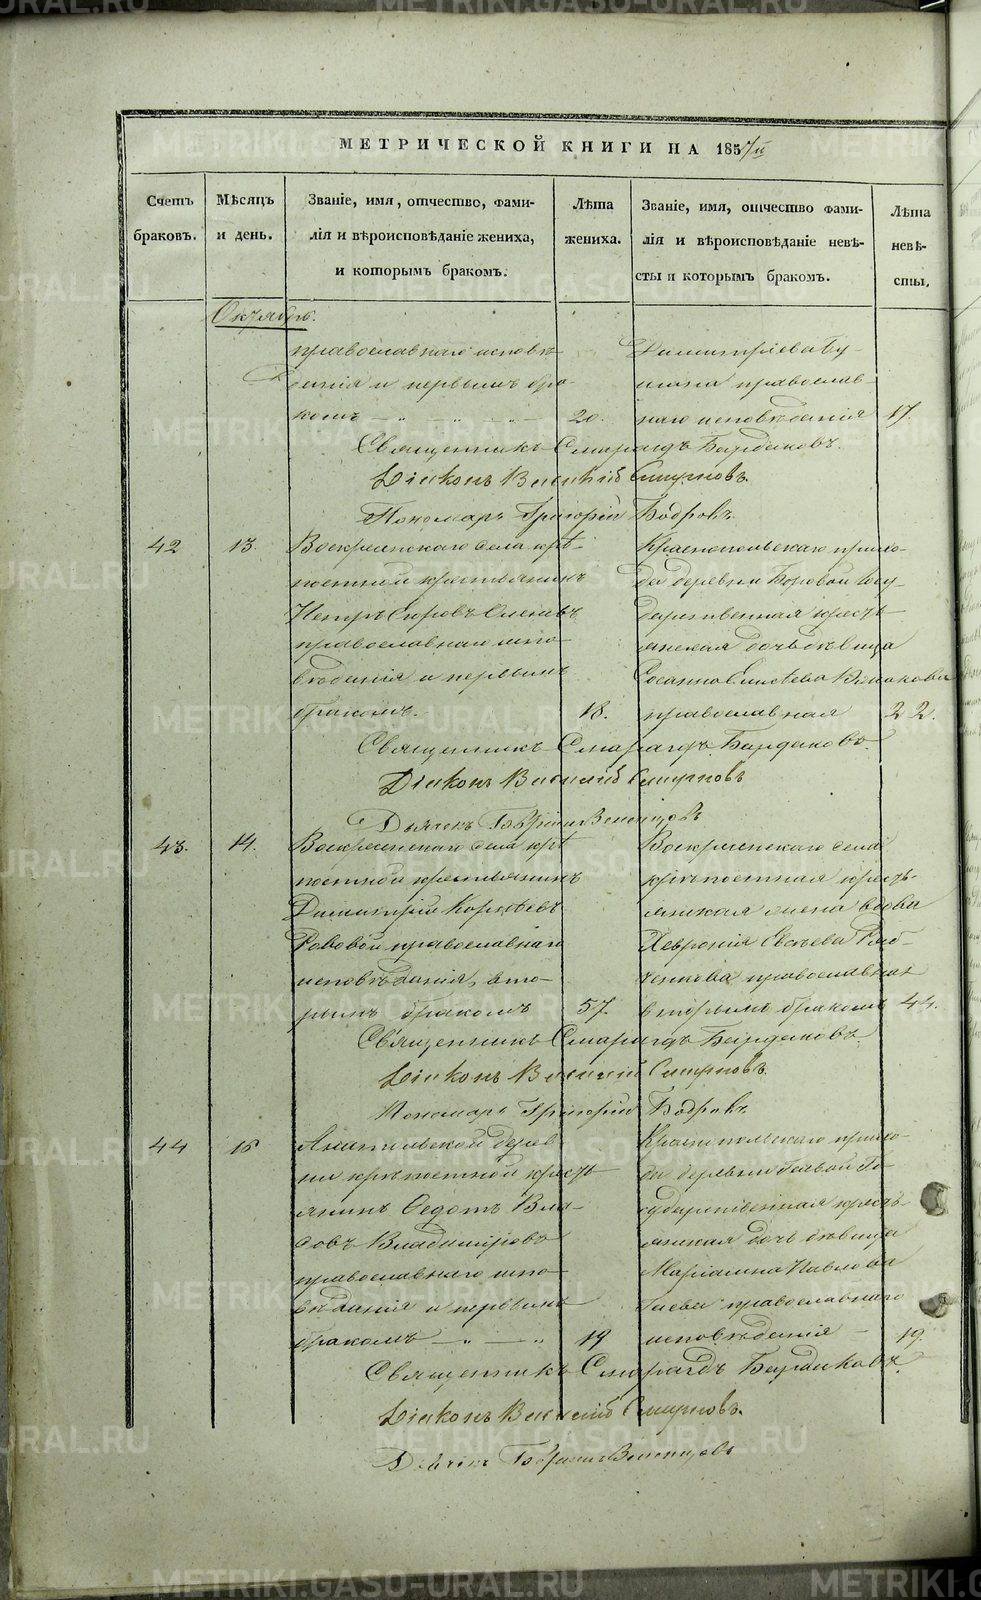 МЕТРИЧЕСКОЙ КНИГИ НА 1857
Счетъ браковъ.
Мѣсяцъ и день.
Званіе, имя, отчество, фами-
лія и вѣроисповѣданіе жениха,
и которымъ бракомъ.
Лѣта жениха.
Званіе, имя, отчество фами-
лія и вѣроисповѣданіе невѣ-
сты и которымъ бракомъ.
Лѣта невѣ-
сты.
Октябрь.
православнаго исповѣ-
данія и первымъ бра-
комъ 20.
Димитріева
православ-
наго исповѣданія 17.
Священникъ Смарагдъ Бардаковъ.
Діаконъ Василій Смирновъ.
Пономарь Григорій Бобровъ.
42 13. Воскресенскаго села крѣ-
постной крестьянинъ
Петръ
православнаго испо-
вѣданія и первымъ
бракомъ. 18.
Краснопольскаго прихо-
да деревни Боровой Госу-
дарственная кресть-
янская дочь дѣвица
православная 22.
Священникъ Смарагдъ Бардаковъ.
Діаконъ Василій Смирновъ
Дьячекъ
43. 14. Воскресенскаго села крѣ-
постной крестьянинъ
Димитрій
православнаго
исповѣданія, вто-
рымъ бракомъ 57.
Воскресенскаго села
крѣпостная кресть-
янская жена вдова
Хевронія
православная
вторымъ бракомъ 44.
Священникъ Смарагдъ Бардаковъ.
Діаконъ Василій Смирновъ.
Пономарь Григорій Бобровъ.
44 16 дерев-
ни крѣпостной кресть-
янинъ Федотъ Вла-
совъ Владиміровъ
православнаго испо-
вѣданія и первымъ
бракомъ 19
Краснопольскаго прихо-
да деревни Го-
сударственная кресть-
янская дочь дѣвица
Маріамна Павлова
православнаго
исповѣданія 19.
Священникъ Смарагдъ Бардаковъ.
Діаконъ Василій Смирновъ.
Дьячекъ
METRIKI.GASO-URAL.RU